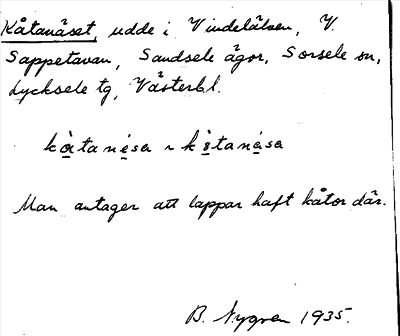 Kåtanäset, udde i Vindelälven, V.
Sappetavan, Sandsele ägor, Sorsele sn,
Lycksele tg, Västerbl.
Man antager att lappar haft kåtor där.
B. Nygren 1935.